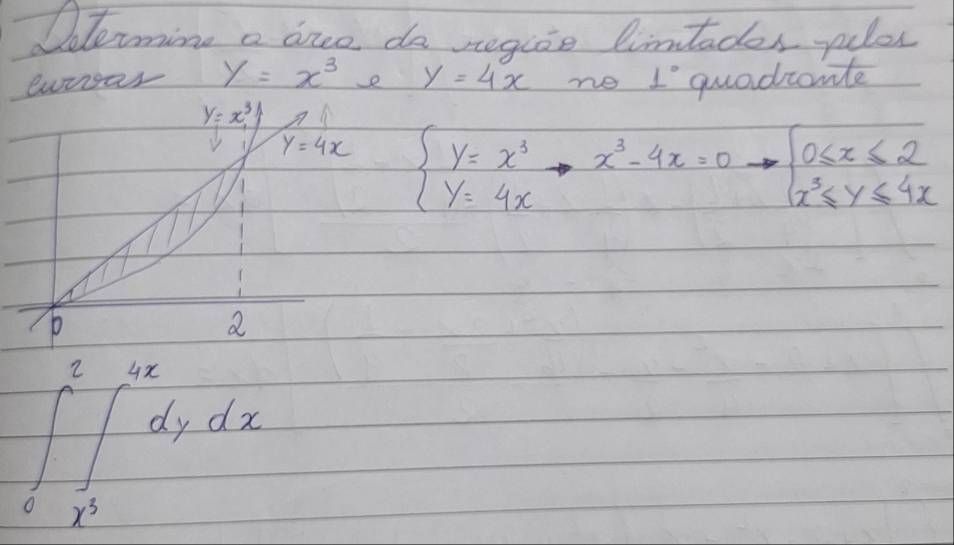 Determine a área da região limitadas pelas
curvas Y = x³ e Y = 4x no 1° quadrante
Y = x³
Y = 4x
{ Y = x³ → x³ - 4x = 0 → { 0 ≤ x ≤ 2
Y = 4x x³ ≤ Y ≤ 4x
0 2
2 4x
∫ ∫ dy dx
0 x³